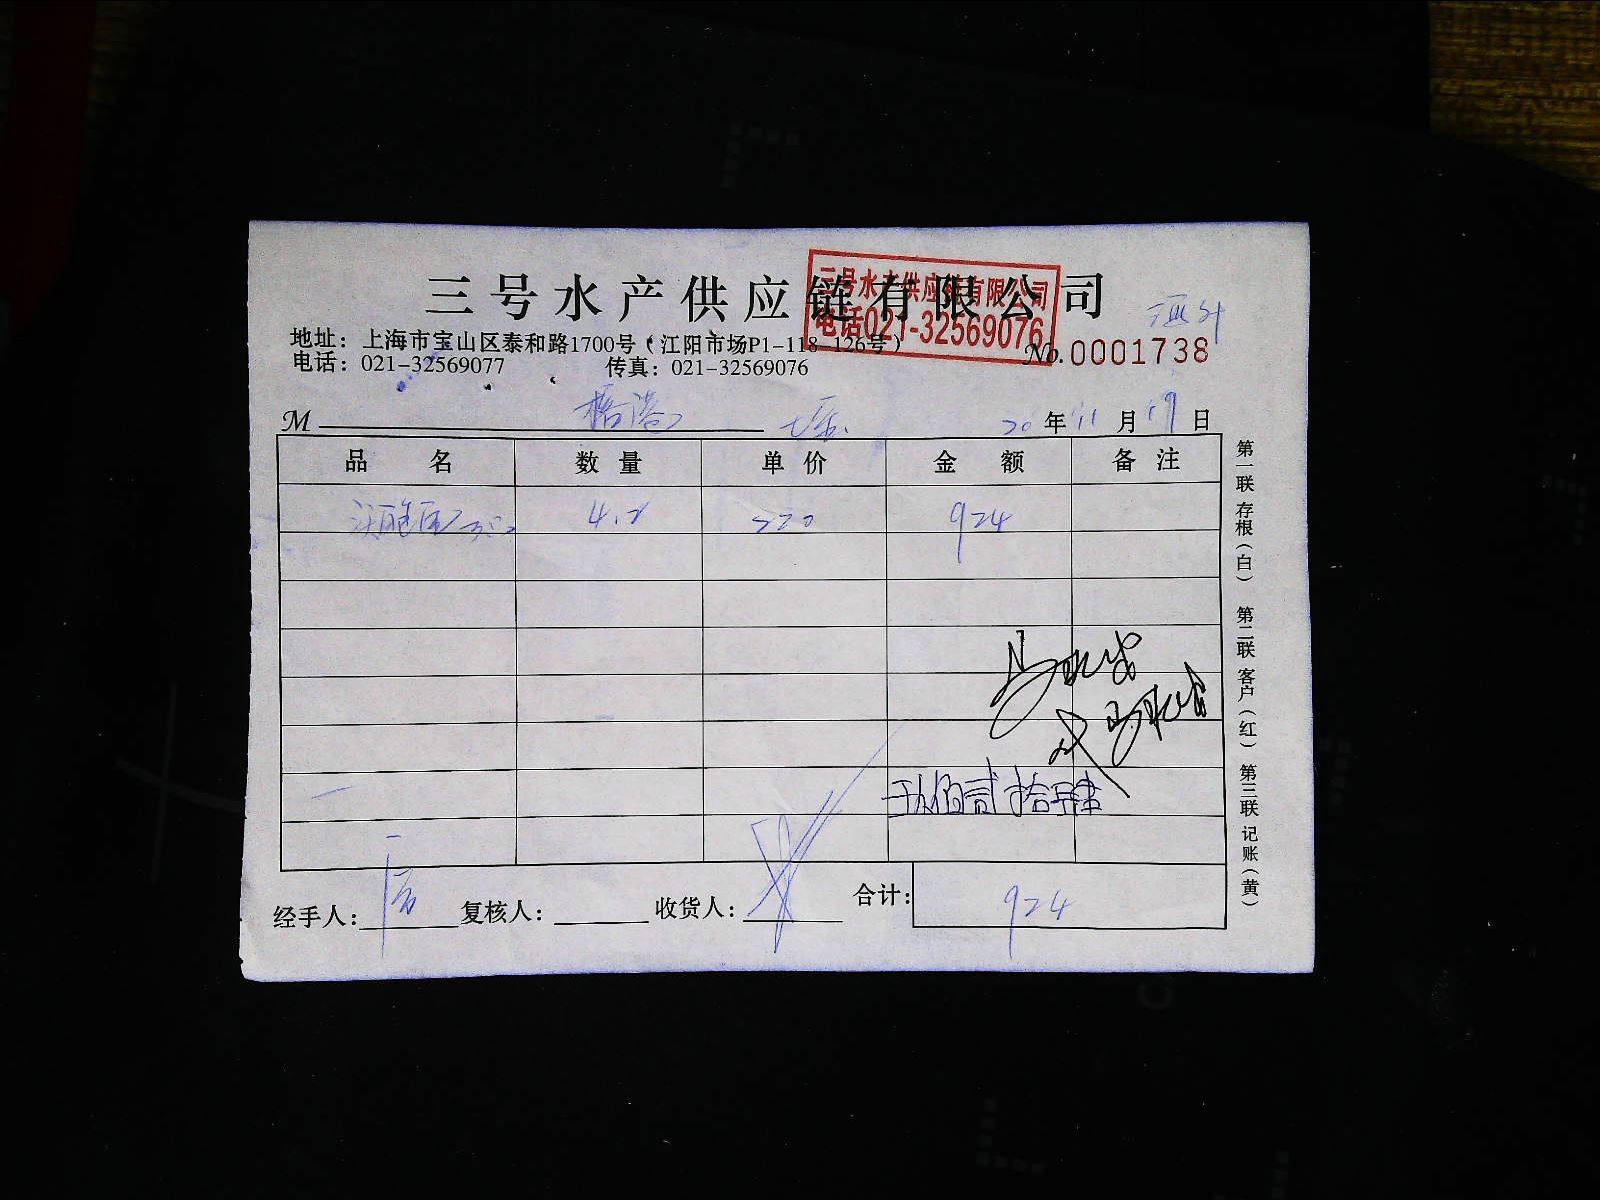 三号水产供应链有限公司
三号水产供应链有限公司
电话021-32569076
地址：上海市宝山区泰和路1700号（江阳市场P1-118-126号）
No.0001738
电话：021-32569077 传真：021-32569076
M 20年11月19日
品名 数量 单价 金额 备注
4.2 220 924
玖佰贰拾肆
经手人： 复核人： 收货人： 合计：924
第一联 存根（白） 第二联 客户（红） 第三联 记账（黄）